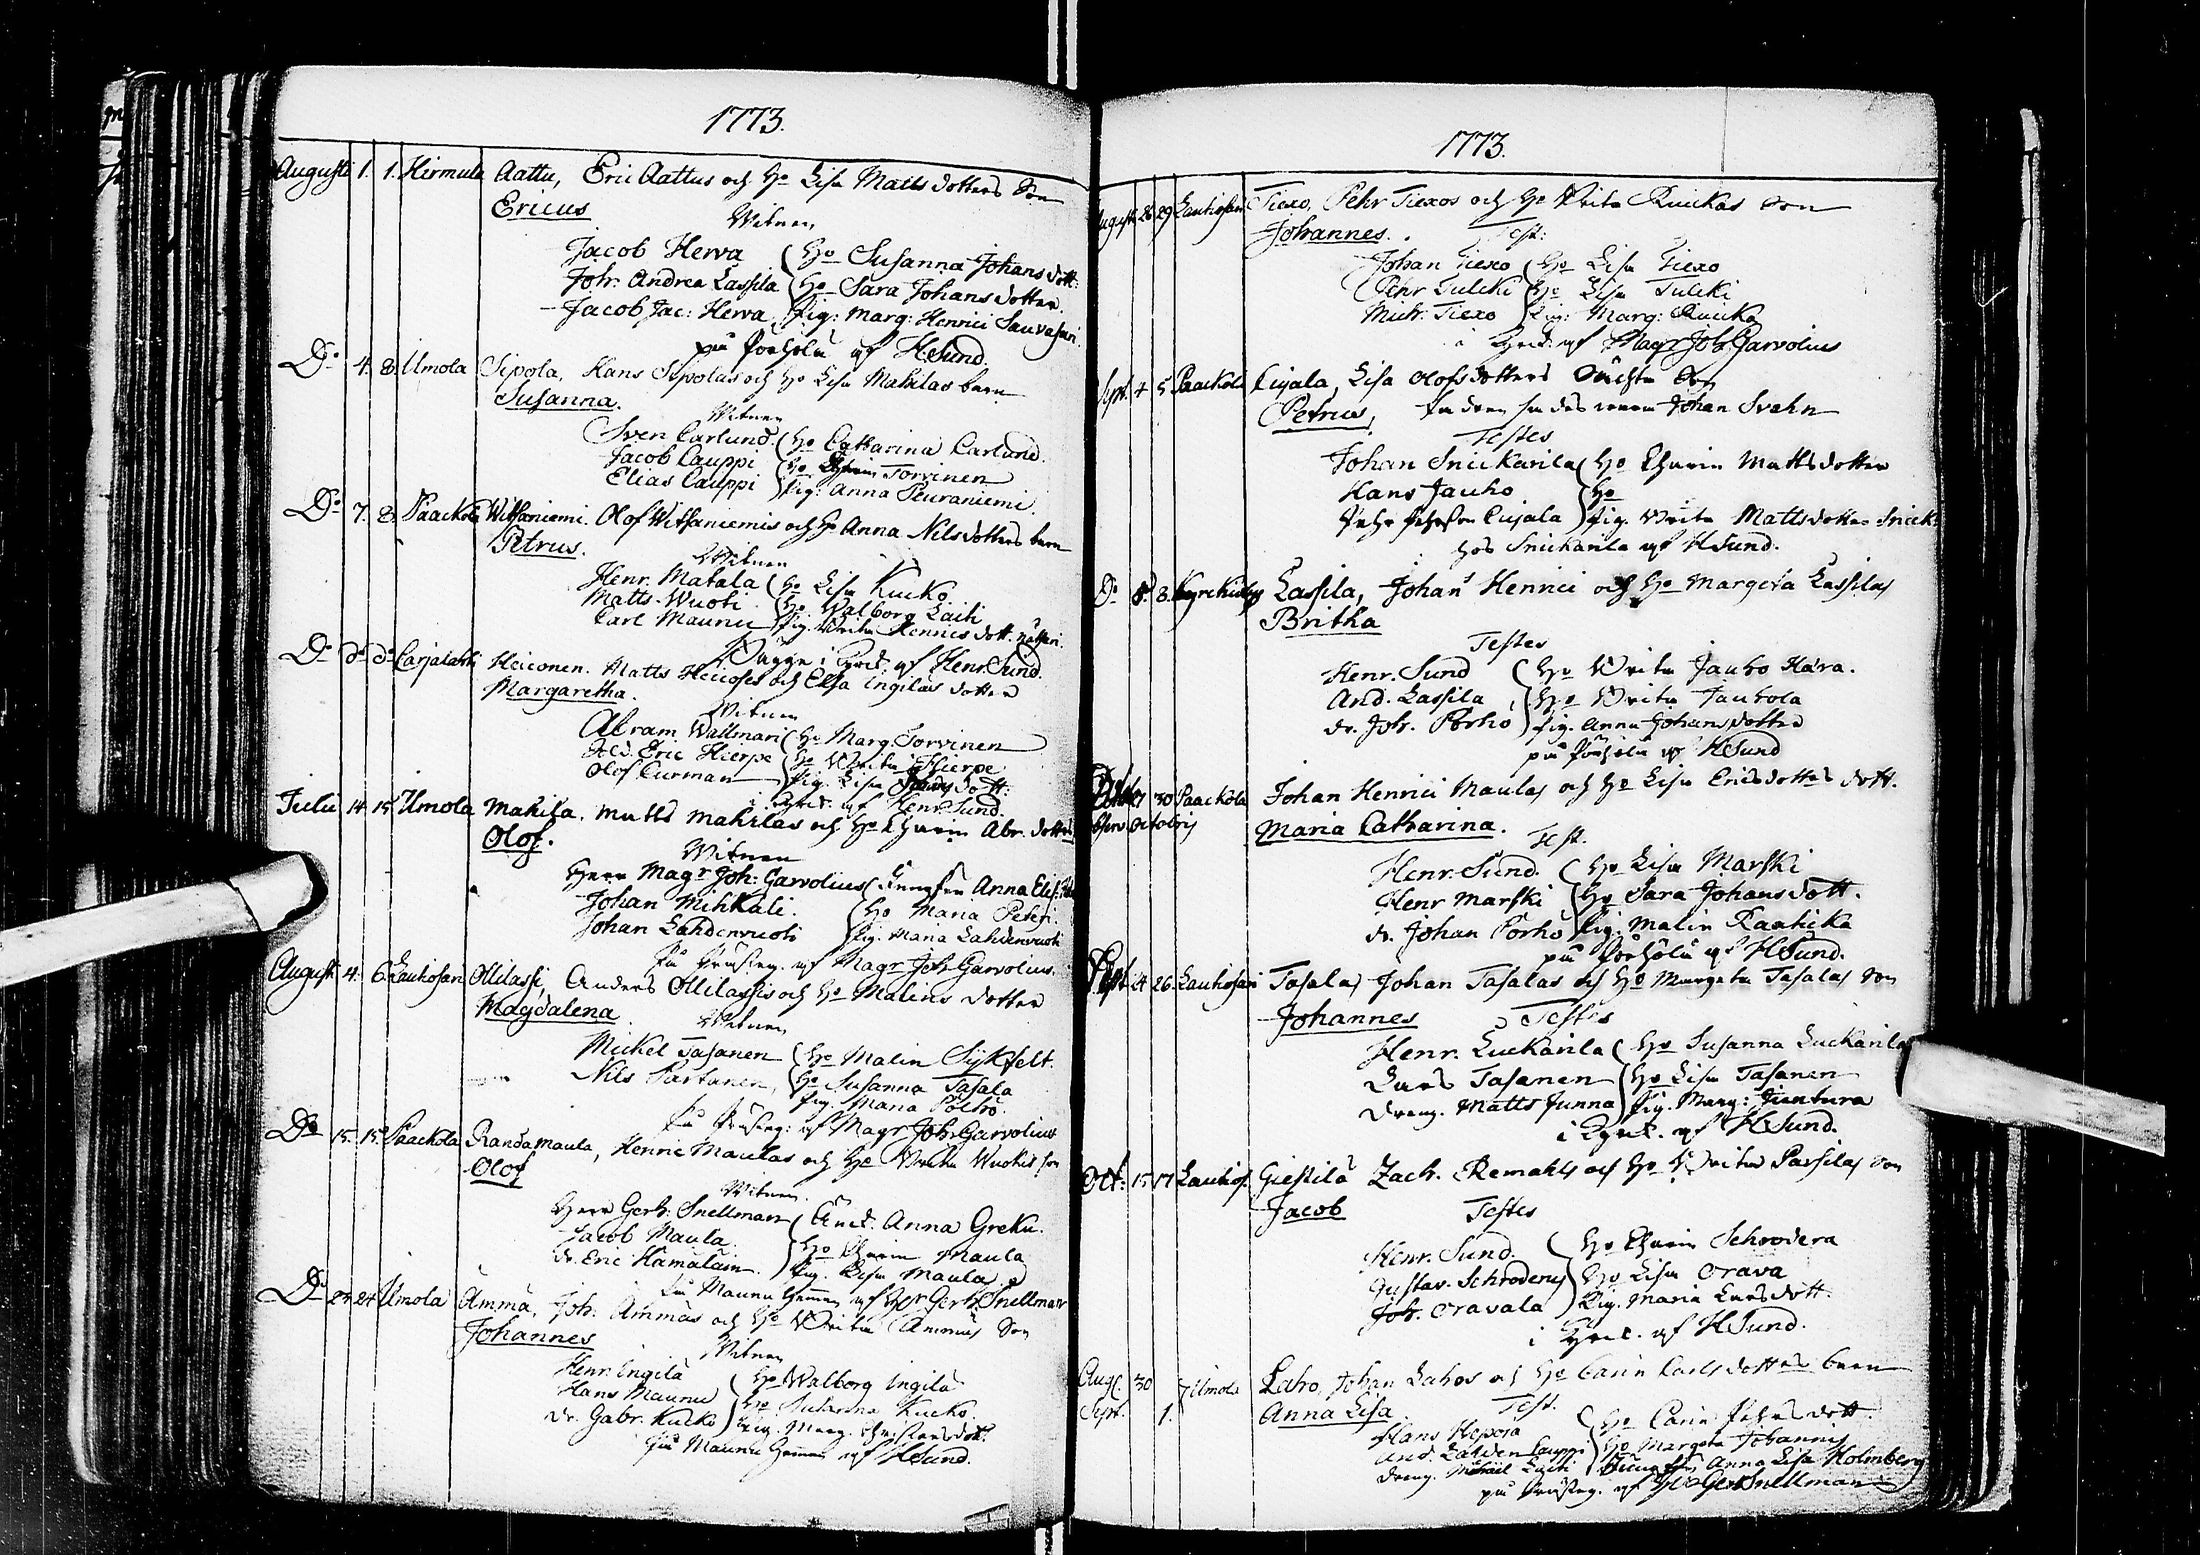 1773.
Augusti 1. 1. Hirmula Aattu, Eric Aattus och H:o Lisa Matts dotters Son
Ericus
Witnen
Jacob Herva H:o Susanna Johans dott:
Joh: Andrea Lassila H:o Sara Johans dotter.
Jacob Jac: Herva Pig: Marg: Henrici Sauvasari.
på Porhola af HSund.
D:o 4. 8. Umola Sipola, Hans Sipolas och H:o Lisa Mahilas barn
Susanna.
Witnen
Sven Carlund. H:o Catharina Carlund.
Jacob Cauppi H:o Torvinen
Elias Cauppi Pig: Anna Peuraniemi.
D:o 7. 8. Paackola Witsaniemi. Olof Witsaniemis och H:o Anna Nils dotters barn
Petrus.
Witnen
Henr. Matala H:o Lisa Kucko
Matts Wuoti H:o Walborg Laiti
Carl Maunu Pig. Brita Henrics dott.
i Kyrk. af Henr. Sund.
D:o d:o d:o Carjalaht Heiconen. Matts Heicoses och Elsa Ingilas dotter
Margaretha.
Witnen
Abram Wallmari H:o Marg. Torvinen
Eric Hierpe H:o Brita Hierpe
Olof Curman Pig. Lisa dott:
i Kyrk. af Henr. Sund.
Julii 14. 15. Umola Mahila. Matts Mahilas och H:o Charin Abr. dotters
Olof.
Witnen
Herr Mag:r Joh: Garvolius Jungfru Anna Elis:
Johan Mihkali. H:o Maria Peteri.
Johan Lahdenvuoti Pig. Maria Lahdenvuoti
På Prästeg. af Mag:r Joh. Garvolius.
August. 4. 6. Lauhosari Ollilassi, Anders Ollilassis och H:o Malins dotter
Magdalena.
Witnen
Mickel Tasanen H:o Malin Sijkfelt.
Nils Partanen, H:o Susanna Tasala
Pig. Maria Pölhö.
På Prästeg: af Mag:r Joh. Garvolius
D:o 15. 15. Paackola Randamaula, Henric Maulas och H:o Brita Wuotis son
Olof
Witnen.
Herr Gerh: Snellman Anna Greku.
Jacob Maula. H:o Charin Maula
dr. Eric Hämäläin. Pig. Lisa Maula.
På Maunu hemman af H:r Gerh. Snellman
D:o 22. 24. Umola Ämmä, Joh: Ämmäs och H:o Brita Ämmäs Son
Johannes
Witnen
Henr. Ingilä H:o Walborg Ingilä
Hans Maunu H:o Susanna Kucko.
dr. Gabr. Kucko Pig. Marg. Christersdott:
På Maunu hemman af HSund.
1773.
August. 28. 29. Lauhosari Tiexo, Pehr Tiexos och H:o Brita Ruickas Son
Johannes.
Test:
Johan Tiexo H:o Lisa Tiexo
Pehr Tulcki H:o Lisa Tulcki
Mich. Tiexo Pig: Marg: Ruicka
i Kyrk. af Mag:r Joh. Garvolius
Sept. 4 5 Paackola Cujala, Lisa Olofs dotters Oächta Son
Petrus, Johan Svahn
Testes
Johan Snickarila H:o Charin Matts dotter
Hans Jauho H:o
Pehr Pehrson Cujala Pig. Brita Matts dotter Snick:
hos Snickarila af HSund.
D:o 8. 8. Kyrckieby Lassila, Johan Henrici och H:o Margeta Lassilas
Britha
Testes
Henr. Sund H:o Brita Jauho Hära.
And. Lassila, H:o Brita Jauhola
dr. Joh. Porho Pig. Anna Johans dotter
på Porhola af HSund
27 30 Paackola Johan Henrici Maulas och H:o Lisa Erics dotters dott.
Octobris Maria Catharina.
Test.
Henr. Sund. H:o Lisa Marski
Henr Marski H:o Sara Johans dott.
dr. Johan Porho Pig. Malin Raahicka
på Porhola af HSund.
Sept. 24 26. Lauhosari Tasala, Johan Tasalas och H:o Margeta Tasalas Son
Johannes
Testes
Henr. Luckarila H:o Susanna Luckarila
Lars Tasanen H:o Lisa Tasanen
Dreng. Matts Junna Pig. Marg:
i Kyrk. af HSund.
Oct: 15 17 Lauhos. Giestilä Zach. Remahls och H:o Brita Passilas Son
Jacob
Testes
Henr. Sund. H:o Charin Schrodera
Gustav. Schroderus H:o Lisa Orava
Joh. Oravala Pig. Maria Lars dott.
i Kyrk. af HSund.
Aug. 30 Umola Laho, Johan Lahos och H:o Carin Carls dotters barn
Sept. 1. Anna Lisa
Test.
Hans Hepoja H:o Carin Pehrs dott
And. Lahden Cauppi H:o Margeta Johannis
Dreng. Michael Laiti Jungfru Anna Lisa Holmberg
på Prästeg. af H:r Gerh Snellman